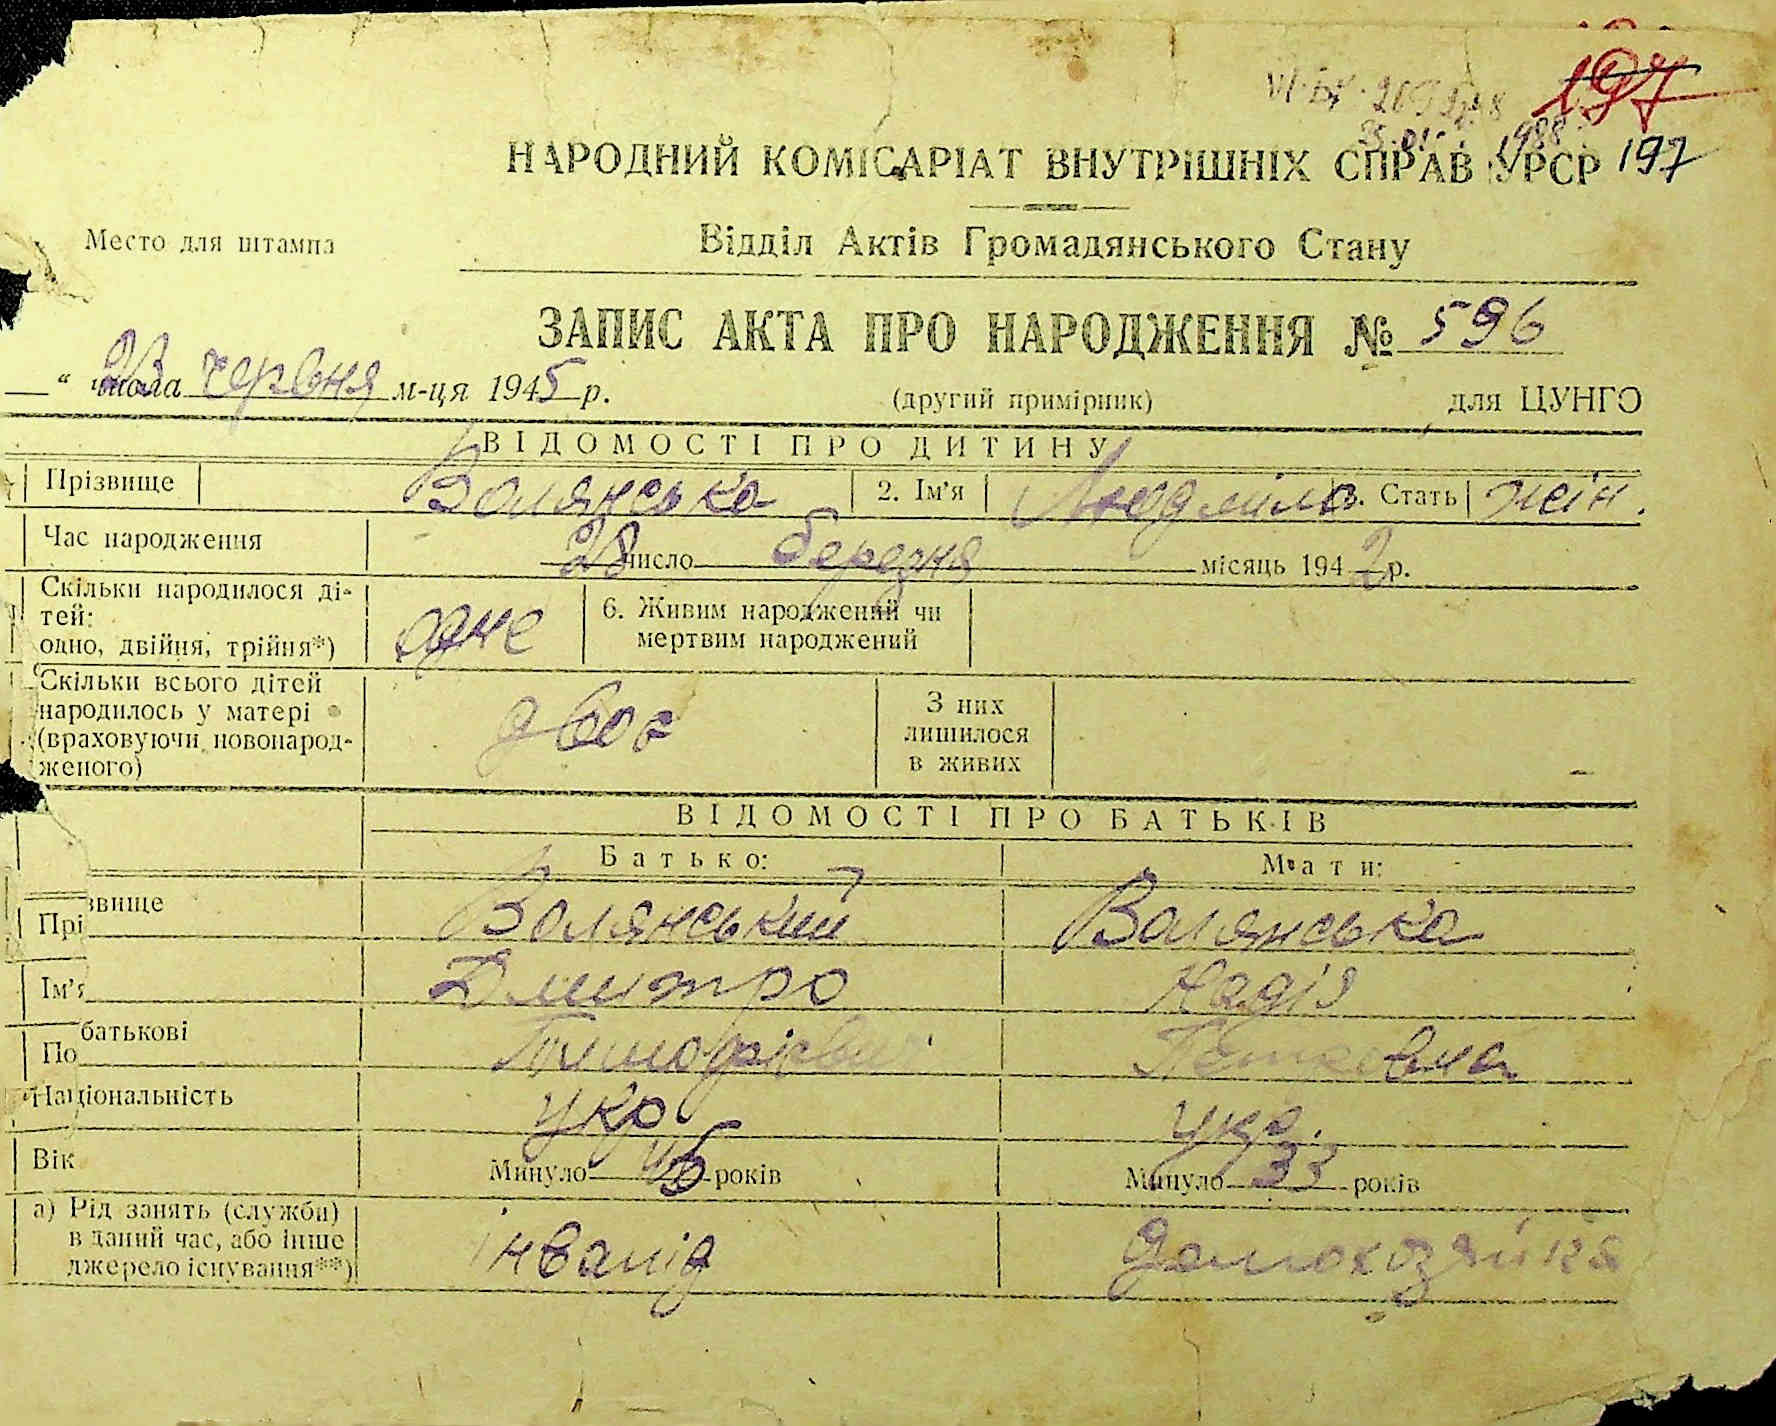 197
1988
НАРОДНИЙ КОМІСАРІАТ ВНУТРІШНІХ СПРАВ УРСР 197
Место для штампа
Відділ Актів Громадянського Стану
ЗАПИС АКТА ПРО НАРОДЖЕННЯ № 596
“ 23 числа червня м-ця 1945 р.
(другий примірник)
для ЦУНГО
ВІДОМОСТІ ПРО ДИТИНУ
Прізвище Волянська 2. Ім’я Людміла 3. Стать жін.
Час народження 28 число березня місяць 1942 р.
Скільки народилося ді-
тей:
одно, двійня, трійня*) одне
6. Живим народжений чи
мертвим народжений
Скільки всього дітей
народилось у матері
(враховуючи новонарод-
женого) двоє
З них
лишилося
в живих
ВІДОМОСТІ ПРО БАТЬКІВ
Батько: Мати:
Прізвище Волянський Волянська
Ім’я Дмитро Надія
По батькові
Національність укр. укр.
Вік Минуло 46 років Минуло 33 років
а) Рід занять (служби)
в даний час, або інше
джерело існування**) інвалід домохозяйка